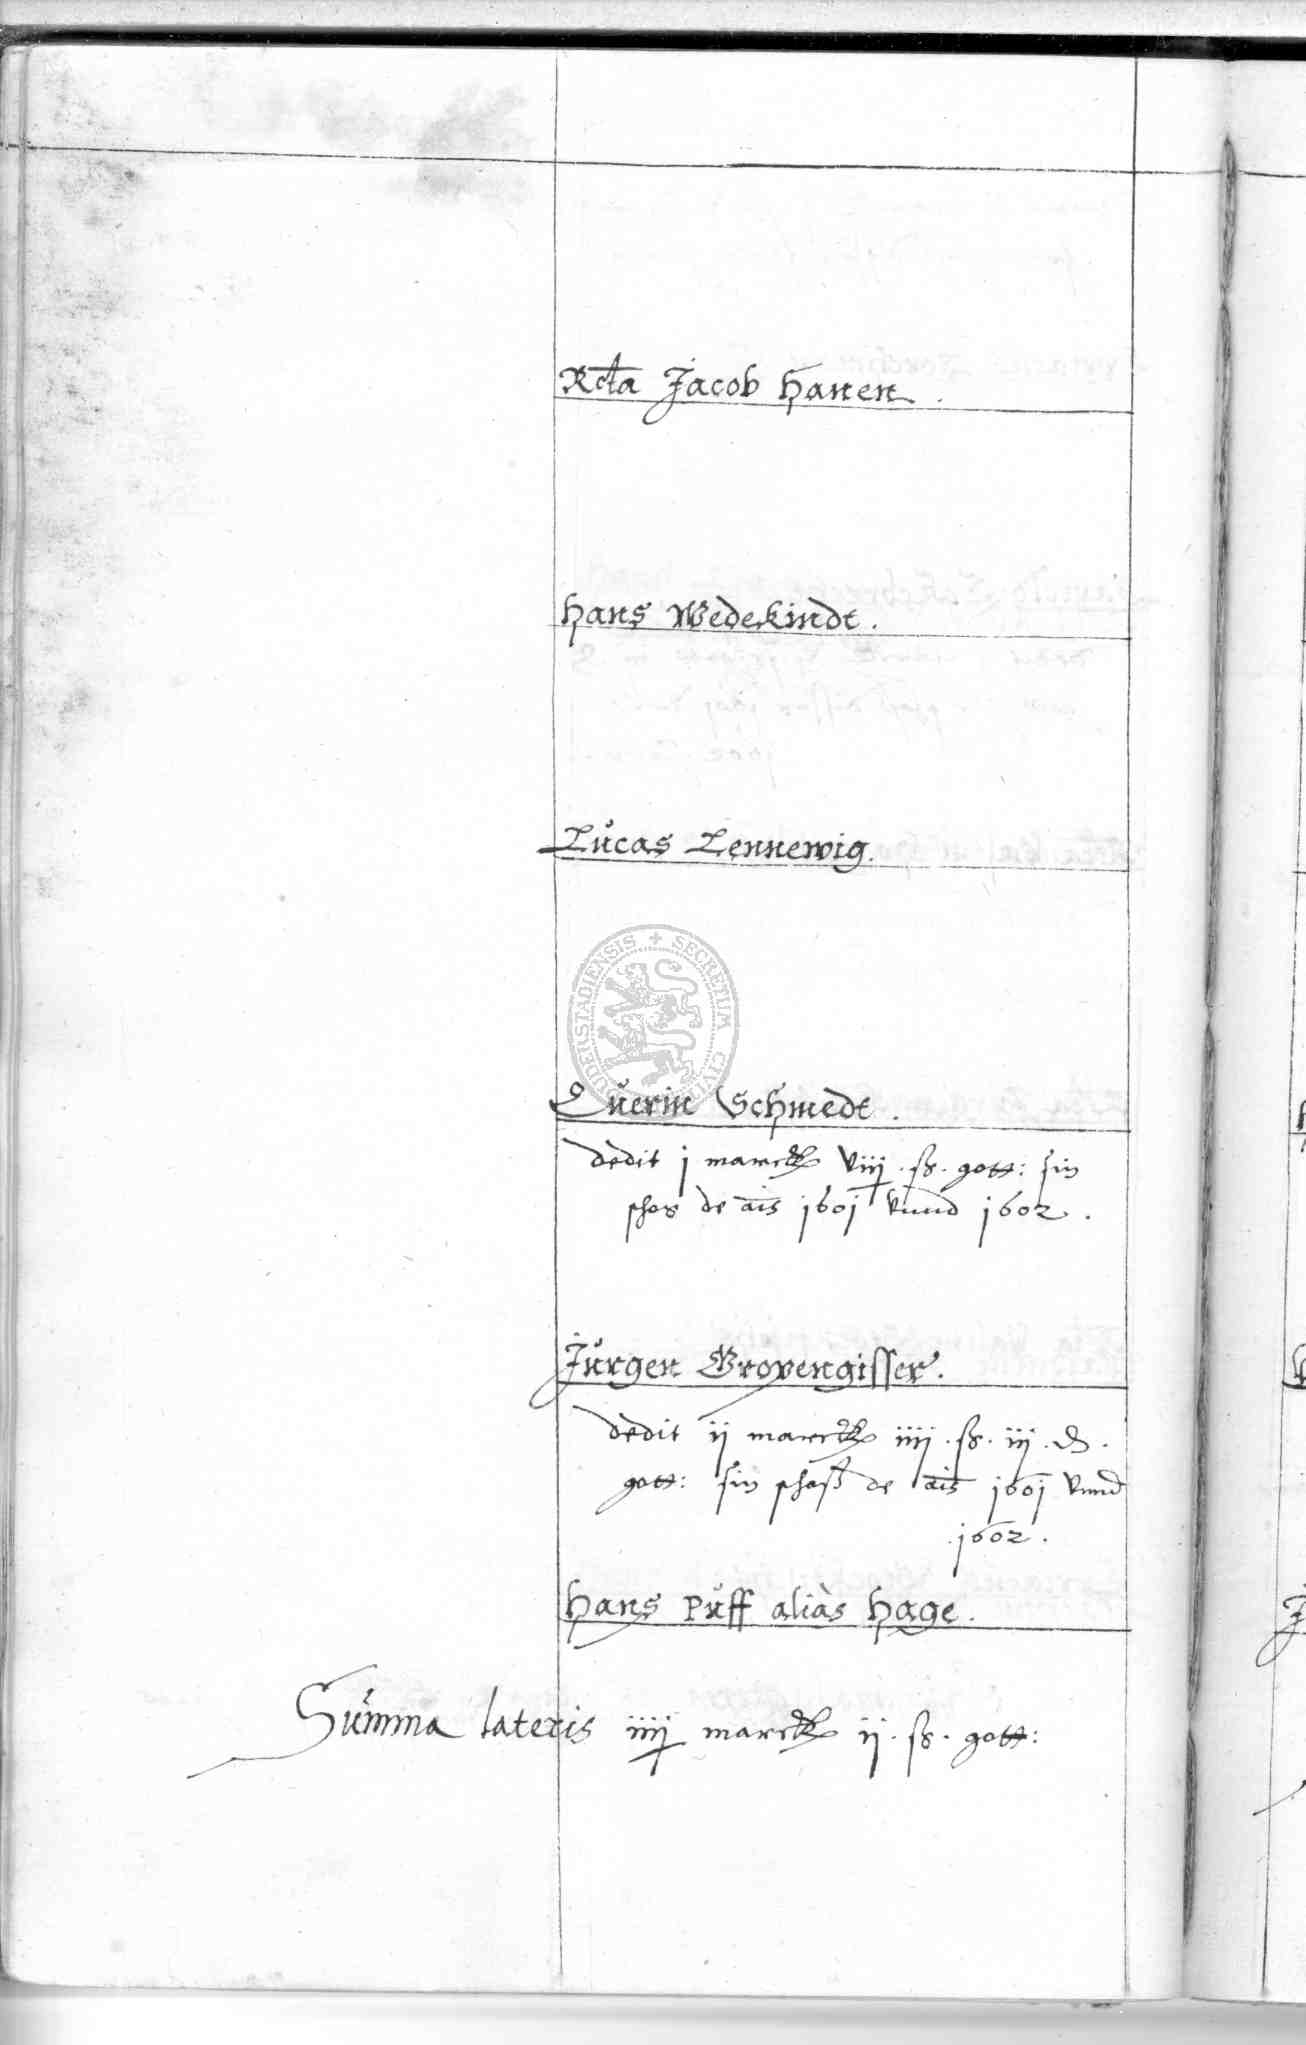 Rcta Jacob Hanen.
Hans Wedekindt.
Lucas Lennewig.
DUDERSTADIENSIS + SECRETUM
Querin Schmedt.
dedit j marck viiij . ß . gott: sin
schos de ais 1601 vnnd 1602.
Jurgen Gropengisser.
dedit ij marck iiij . ß . iij . d .
gott: sin schoß de ais 1601 vnnd
1602.
Hans Puff aliàs Hage.
Summa lateris iiij marck ij . ß . gott: